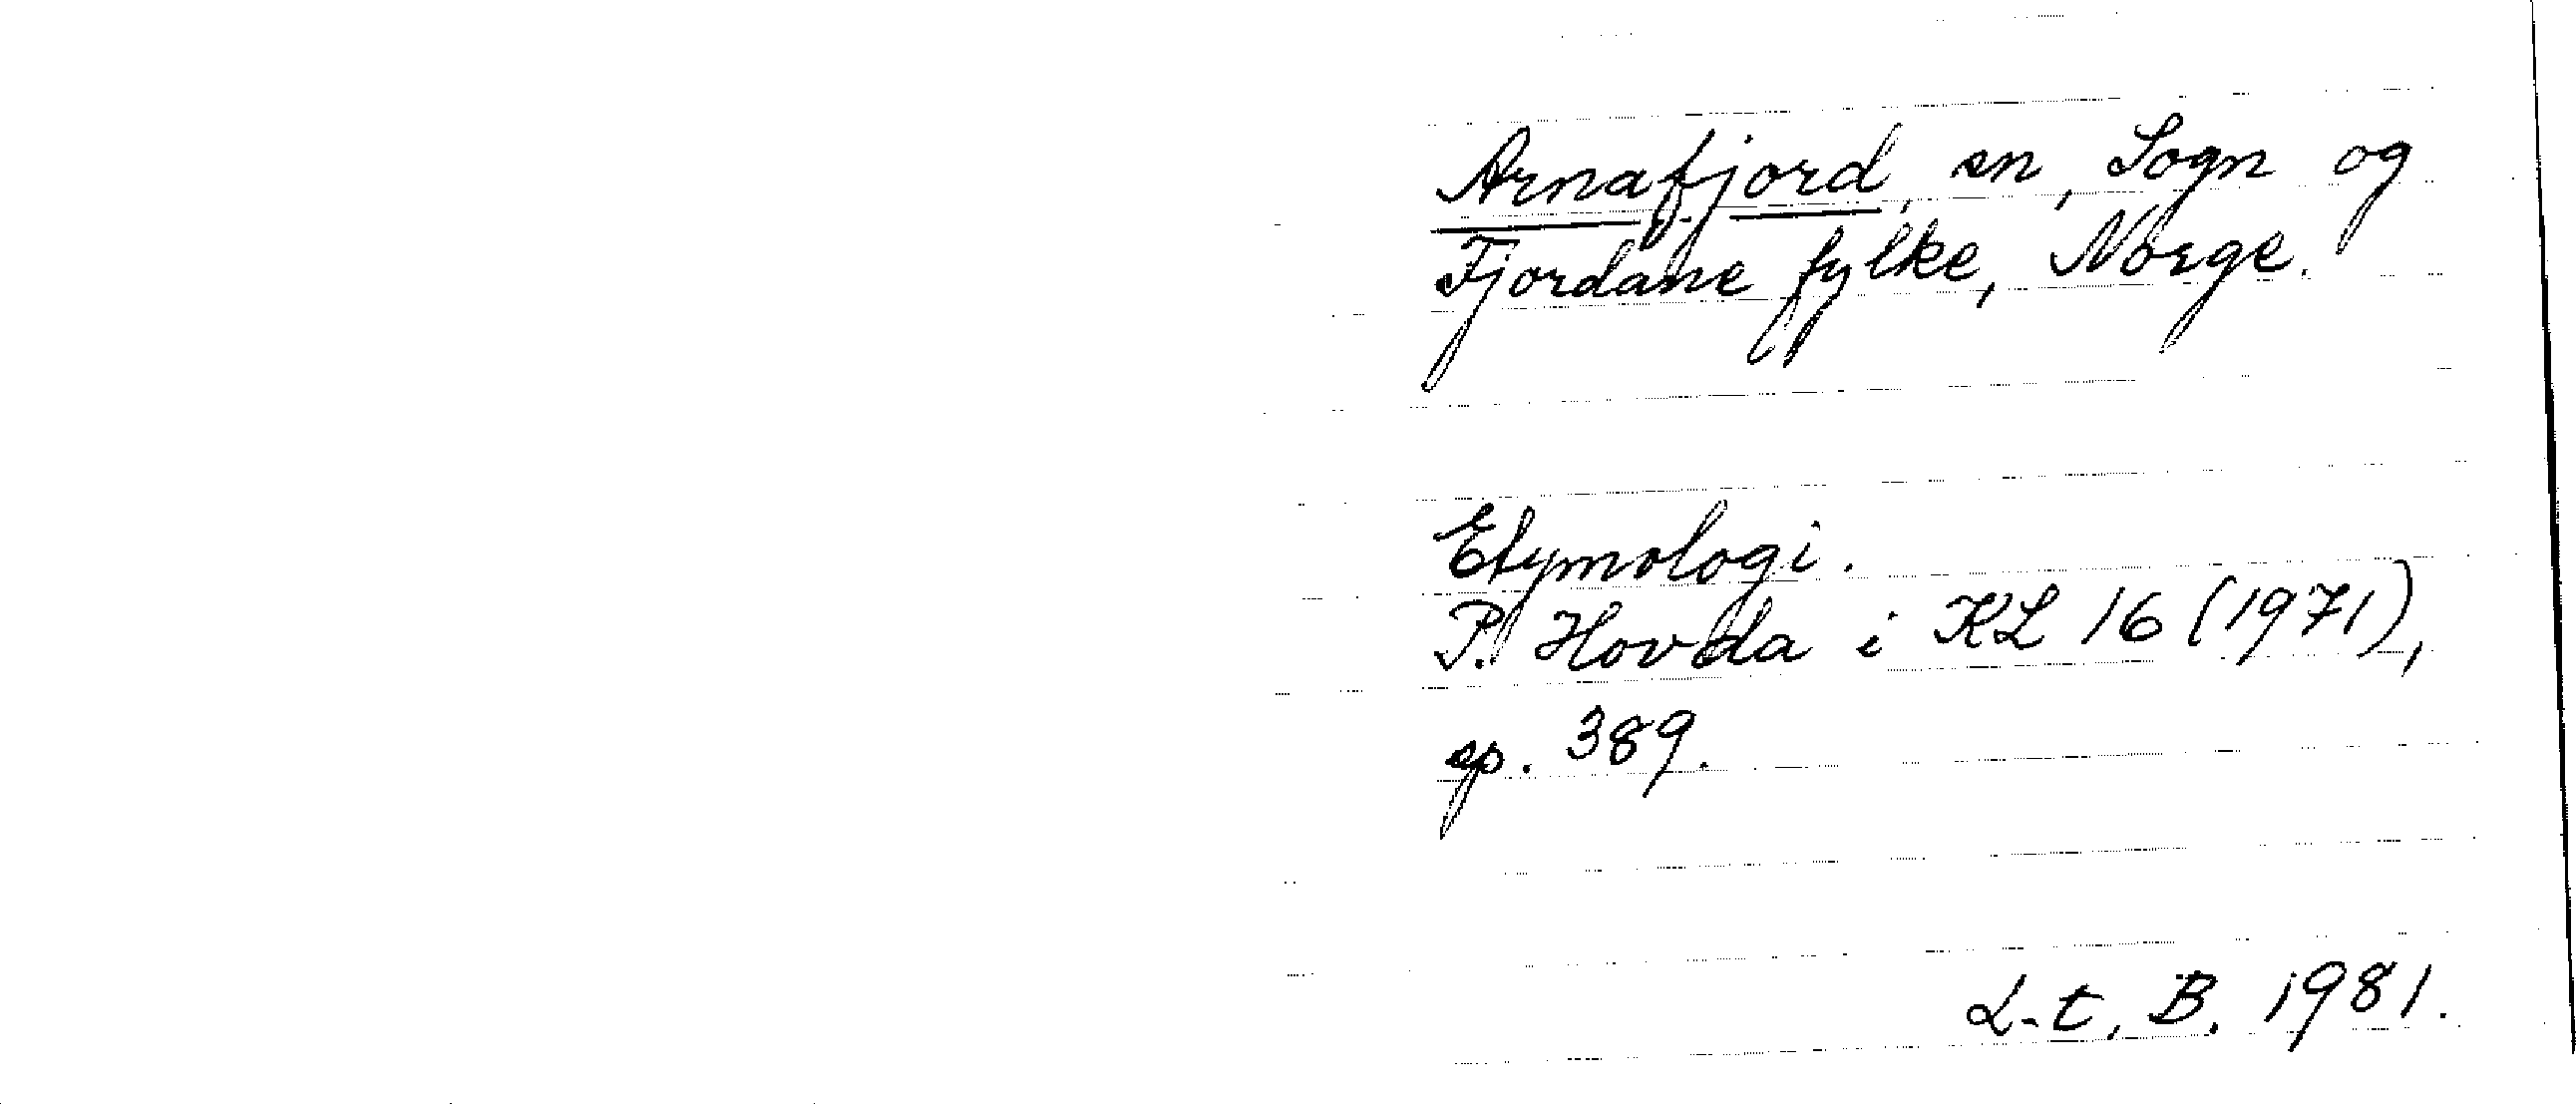 Arnafjord, sn, Sogn og
Fjordane fylke, Norge.
Etymologi.
P. Hovda i KL 16 (1971),
sp. 389.
L-t. B. 1981.